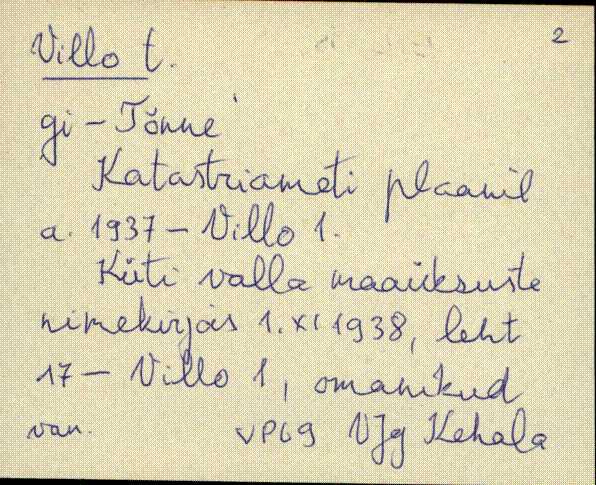 2
Villo t.
gi – Tõnne
Katastriameti plaanil
a. 1937 – Villo 1.
Küti valla maaüksuste
nimekirjas 1. XI 1938, leht
17 – Villo 1, omanikud
van. VJg Kehala